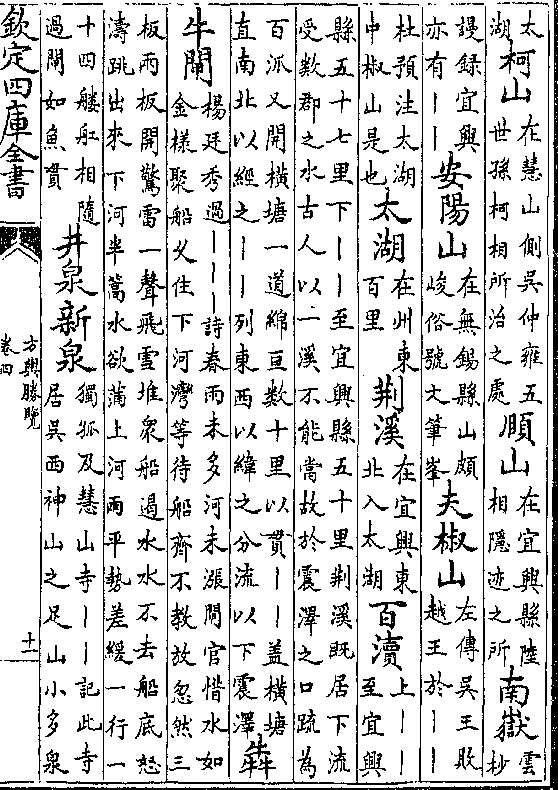 太湖柯山在慧山側吳仲雍五世孫柯相所治之處頤山在宜興縣陸相隱迹之所南嶽雲杪
謾録宜興亦有丨丨安陽山在無錫縣山頗峻俗號文筆峯夫椒山左傳吳王敗越王於丨丨
杜預注太湖中椒山是也太湖在州東百里荆溪在宜興東北入太湖百瀆上丨丨至宜興
縣五十七里下丨丨至宜興縣五十里荆溪既居下流受數郡之水古人以二溪不能當故於震澤之口疏為
百派又開横塘一道綿亘數十里以貫丨丨盖横塘直南北以經之丨丨列東西以緯之分流以下震澤犇
牛閘楊廷秀過丨丨丨詩春雨未多河未漲閘官惜水如金様聚船久住下河灣等待船齊不教放忽然三
板兩板開驚雷一聲飛雪堆衆船過水水不去船底怒濤跳出來下河半篙水欲滿上河兩平勢差緩一行一
十四艘舡相隨過閘如魚貫井泉新泉獨孤及慧山寺丨丨記此寺居吳西神山之足山小多泉
欽定四庫全書
方輿勝覽
卷四
十一